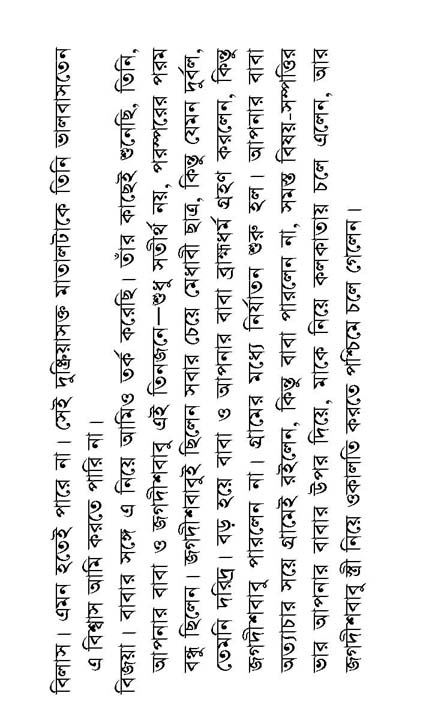 বিলাস। এমন হতেই পারে না। সেই দুষ্ক্রিয়াসক্ত মাতালটাকে তিনি ভালবাসতেন
এ বিশ্বাস আমি করতে পারি না।
বিজয়া। বাবার সঙ্গে এ নিয়ে আমিও তর্ক করেছি। তাঁর কাছেই শুনেছি, তিনি,
আপনার বাবা ও জগদীশবাবু এই তিনজনে—শুধু সতীর্থ নয়, পরস্পরের পরম
বন্ধু ছিলেন। জগদীশবাবুই ছিলেন সবার চেয়ে মেধাবী ছাত্র, কিন্তু যেমন দুর্বল,
তেমনি দরিদ্র। বড় হয়ে বাবা ও আপনার বাবা ব্রাহ্মধর্ম গ্রহণ করলেন, কিন্তু
জগদীশবাবু পারলেন না। গ্রামের মধ্যে নির্যাতন শুরু হল। আপনার বাবা
অত্যাচার সয়ে গ্রামেই রইলেন, কিন্তু বাবা পারলেন না, সমস্ত বিষয়-সম্পত্তির
ভার আপনার বাবার উপর দিয়ে, মাকে নিয়ে কলকাতায় চলে এলেন, আর
জগদীশবাবু স্ত্রী নিয়ে ওকালতি করতে পশ্চিমে চলে গেলেন।